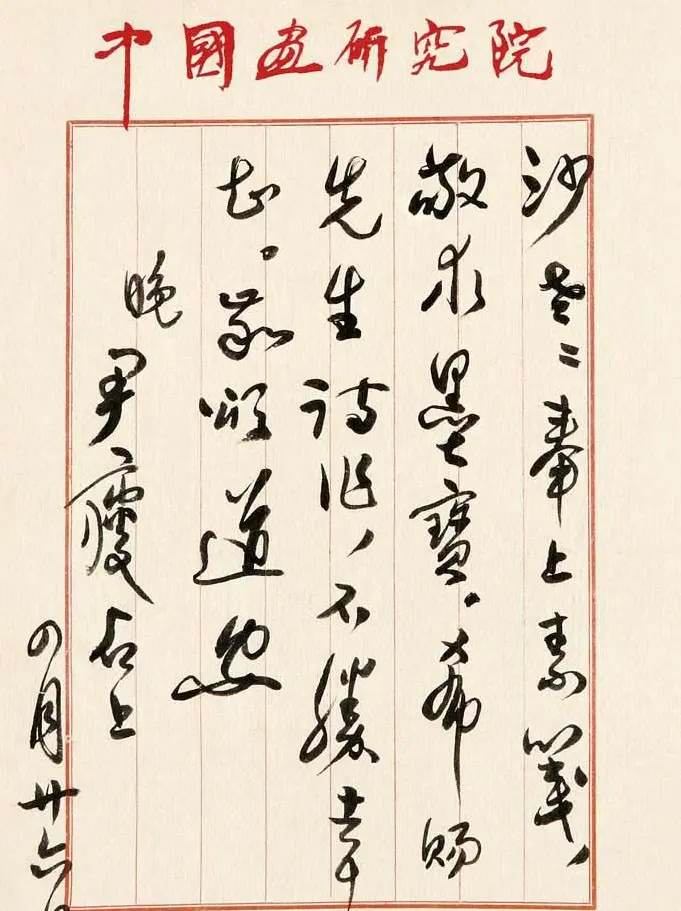 中國畫研究院
沙老:奉上素箋,
敬求墨寶。希賜
先生詩作,不勝幸
甚。敬頌道安
晚
尹瘦石上
四月廿六日